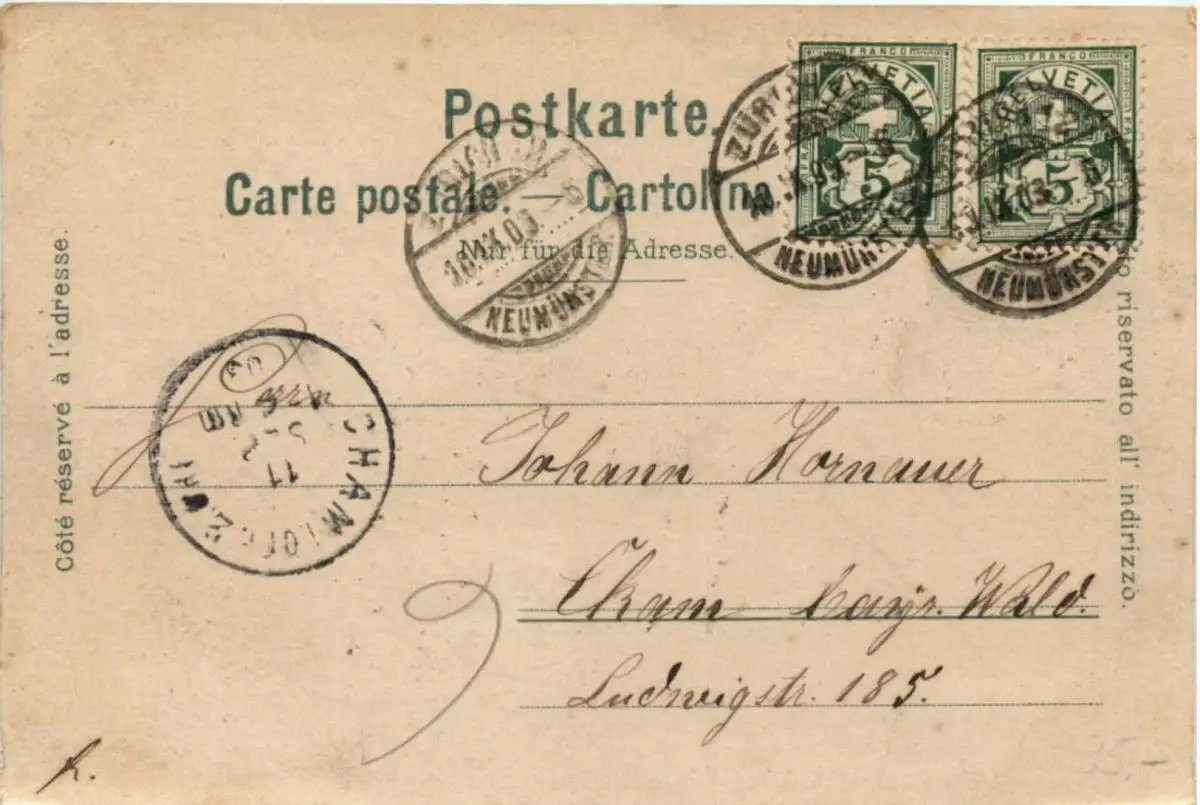 Postkarte.
Carte postale. — Cartolina
Nur für die Adresse.
Côté réservé à l'adresse.
riservato all' indirizzo.
FRANCO
HELVETIA
5
FRANCO
HELVETIA
5
ZÜRICH
10.IX.03.–8
NEUMÜNSTER
ZÜRICH
10.IX.03.–8
NEUMÜNSTER
10.IX.03.–8
NEUMÜNSTER
CHAM
11
SEP
AM
03
Herrn
Johann Hornauer
Cham bayr. Wald.
Ludwigstr. 185.
h.
35.–